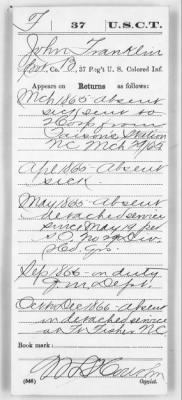 F 37 U.S.C.T.
John Franklin
Co. B, 37 Reg't U. S. Colored Inf.
Appears on Returns as follows:
Mch 1865 - absent
sick sent to
Hosp. from
Faison's Station
NC Mch 29/65
Apl 1866 - Absent
sick.
May 1866 - Absent
detached service
since May 19 per
S.O. No 29
Hd. Qrs.
Sep 1866 - on duty
Q.m. Dept.
Oct & Dec 1866 - Absent
on detached service
at Ft Fisher N.C.
Book mark:
(546) Copyist.